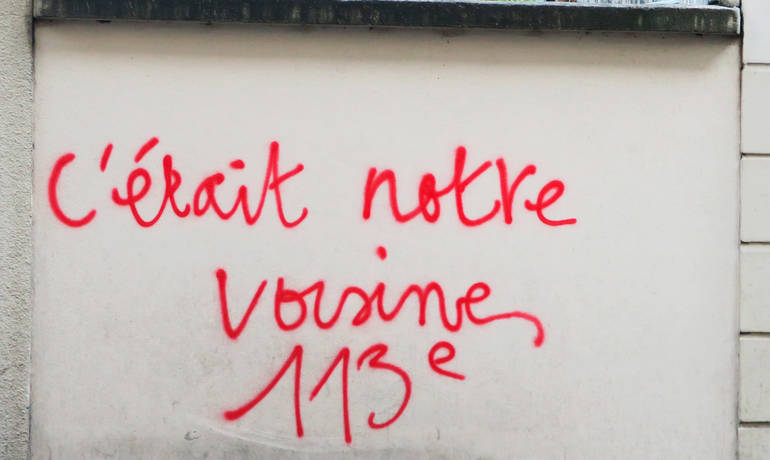 C'était notre
voisine
113e